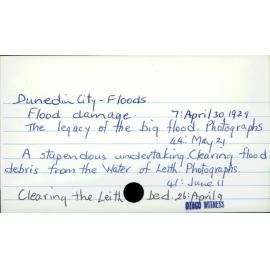 Dunedin City - Floods
Flood damage. 7: April 30, 1929
The legacy of the big flood. Photographs
44: May 21
A stupendous undertaking. Clearing flood
debris from the Water of Leith. Photographs.
41: June 11
Clearing the Leith bed. 26: April 9
OTAGO WITNESS